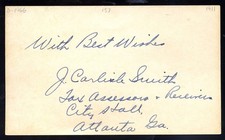 With Best Wishes
J. Carlisle Smith
Tax Assessors + Receivers
City Hall
Atlanta Ga.